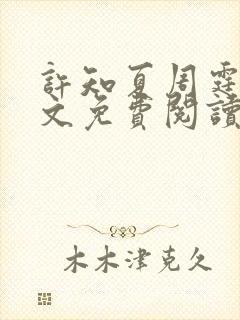 許知夏周霆
文免費閱讀
木木津克久